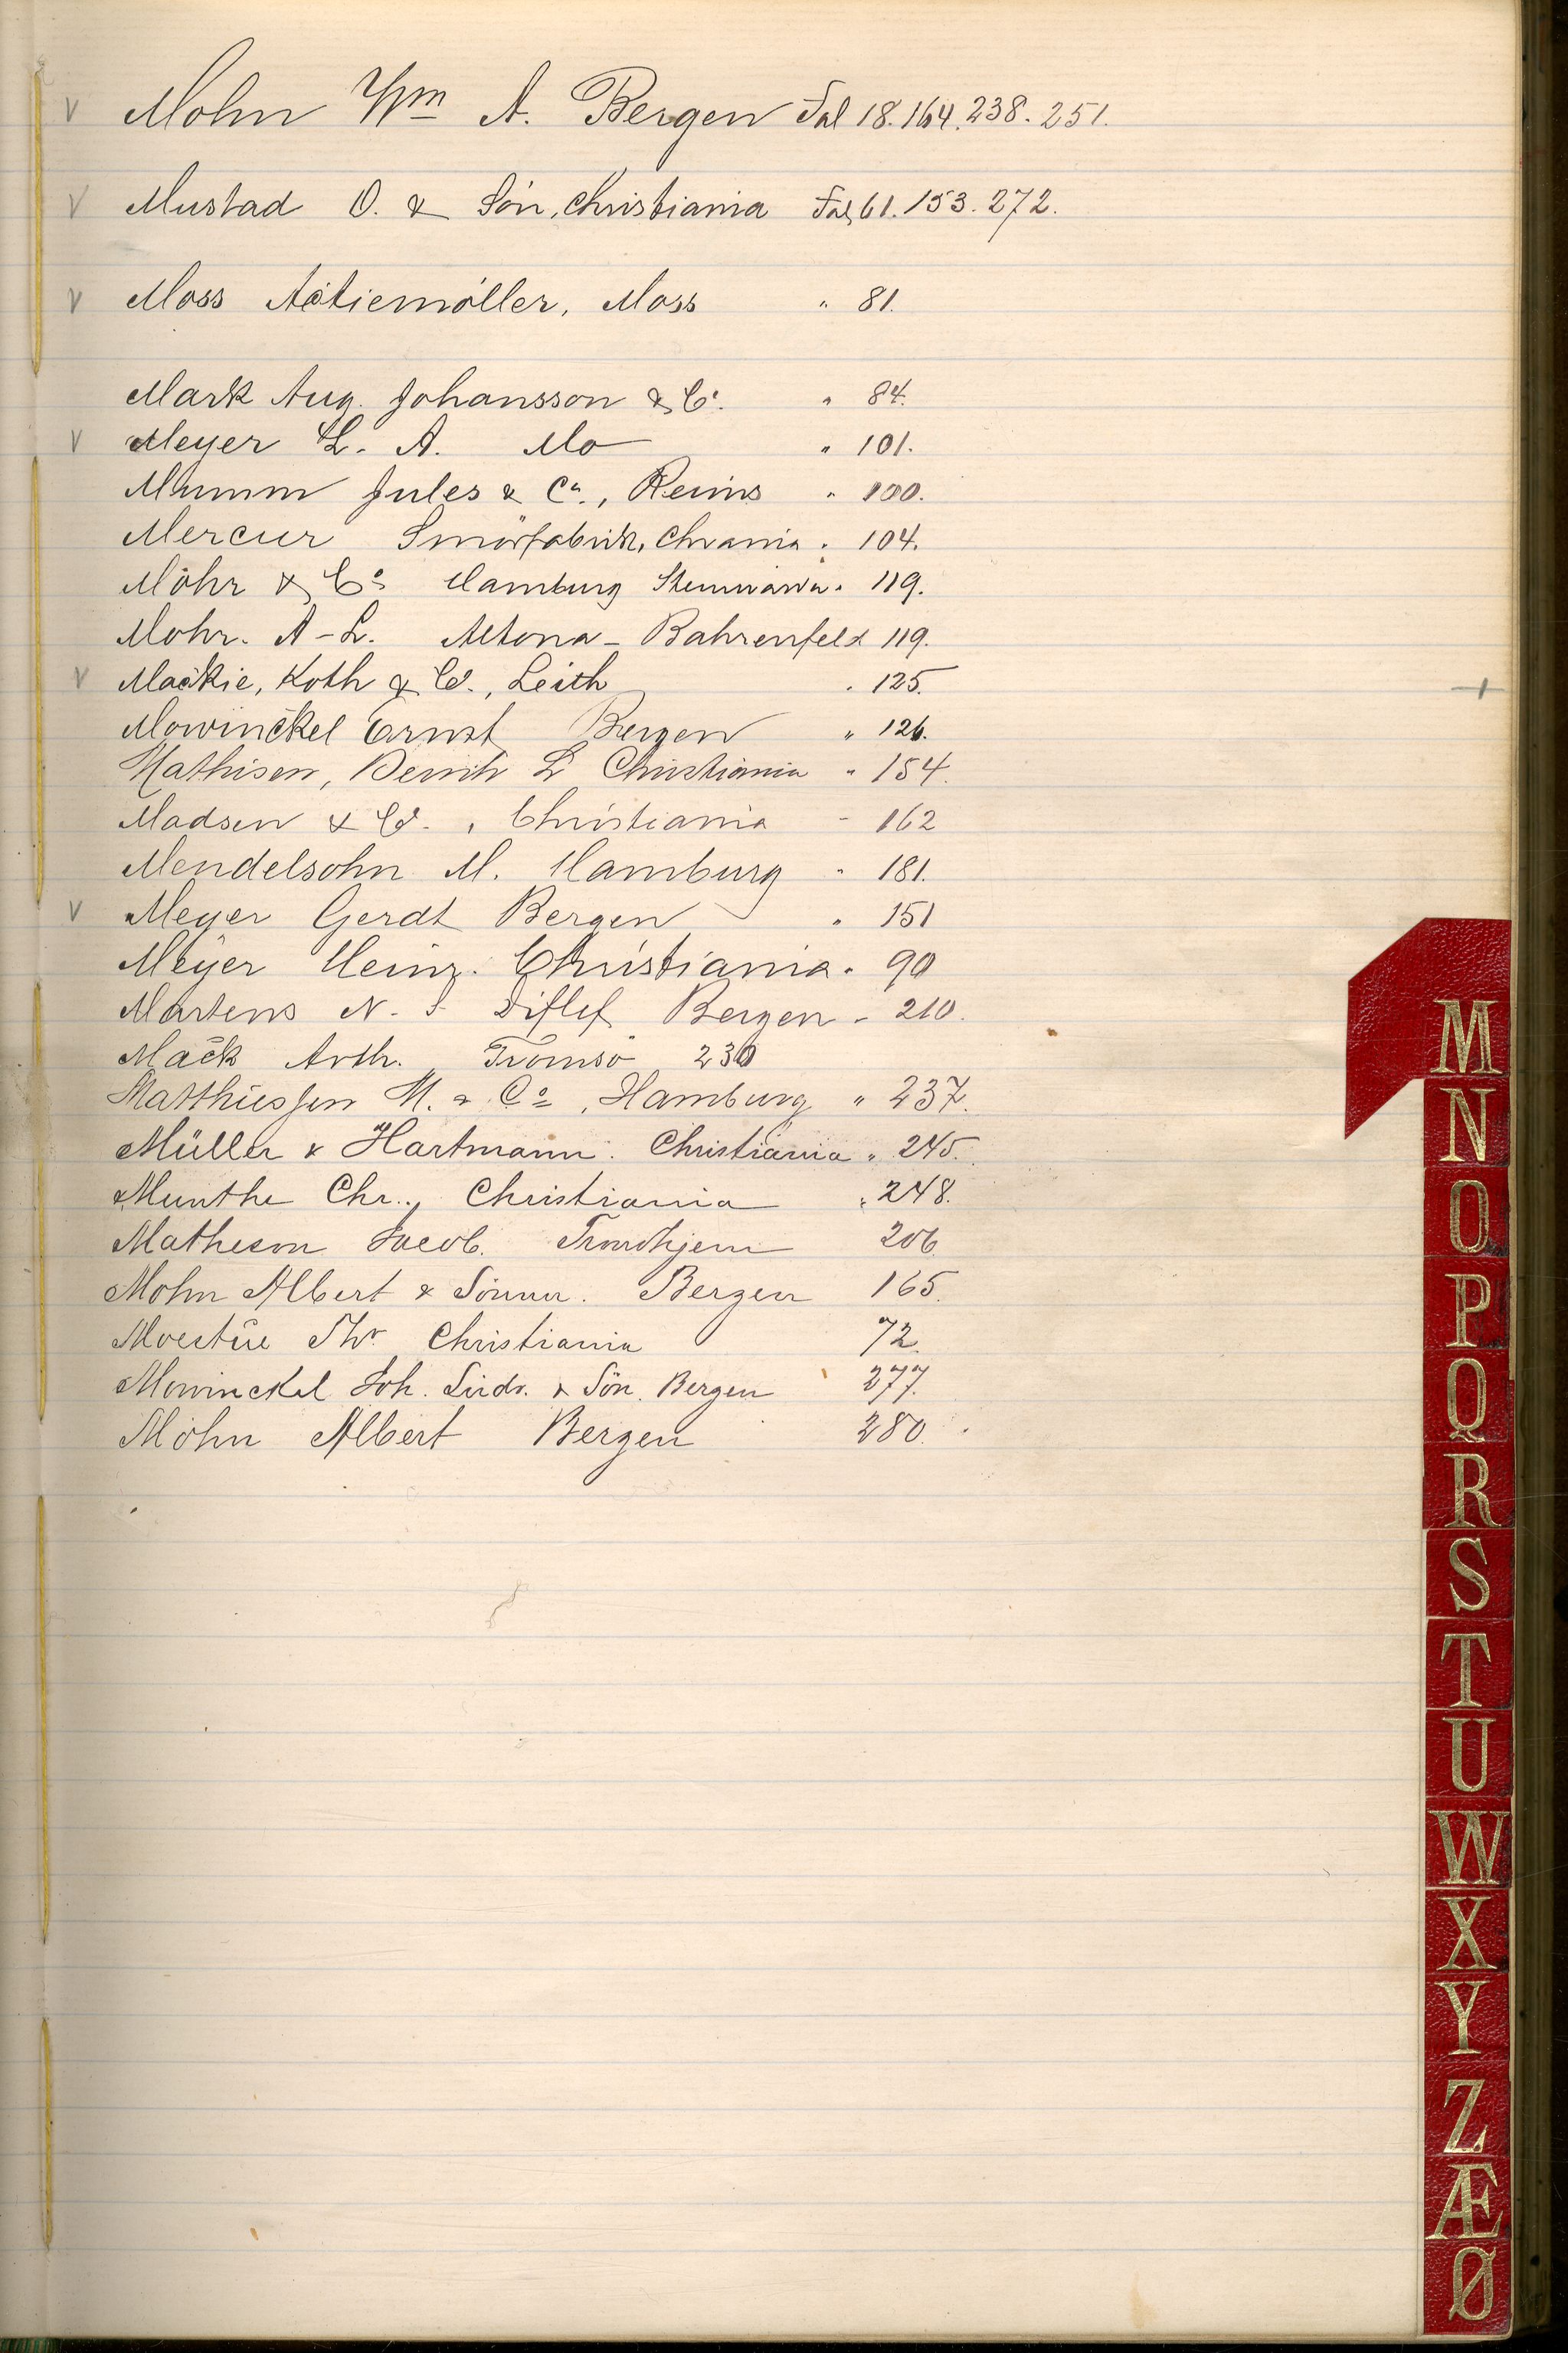 V Mohn Wm A. Bergen Fol 18.164.238.251.
V Mustad O. & Sön, Christiania Fol, 61.153.272.
V Moss Actiemöller, Moss " 81.
Mark Aug. Johansson & Co. " 84.
V Meyer L. A. Mo " 101.
Mumm Jules & Co., Reims " 100.
Mercur Smörfabrik, Chrania " 104.
Möhr & Co Hamburg 119.
Mohr. A-L. Altona-Bahrenfeld 119.
V Mackie, Koth & Co., Leith " 125.
Mowinckel Ernst Bergen " 126.
Mathisen, L Christiania " 154.
Madsen & Co., Christiania - 162
Mendelsohn M. Hamburg " 181.
V Meyer Gerdt Bergen " 151
Meyer Heinr. Christiania " 90
Martens N. S Ditlef Bergen - 210.
Mack Arth. Tromsö 230
Matthiessen M. & Co, Hamburg " 237.
Müller & Hartmann. Christiania " 245.
Munthe Chr., Christiania " 248.
Matheson Jacob. Trondhjem 206
Mohn Albert & Sönner. Bergen 165.
Moestue Thv Christiania 72.
Mowinckel Joh. Ludv. & Sön. Bergen 277.
Mohn Albert Bergen 280.
M
N
O
P
Q
R
S
T
U
W
X
Y
Z
Æ
Ø